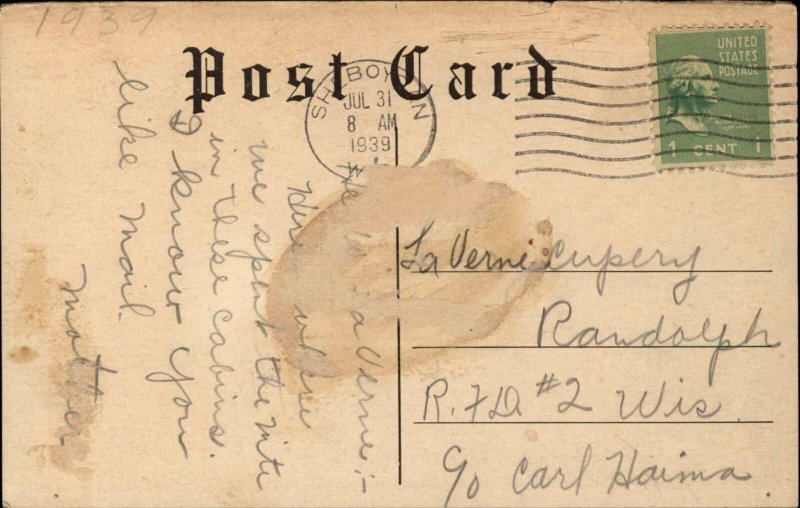 1939
Post Card
SHEBOYGAN
JUL 31
8 AM
1939
UNITED
STATES
POSTAGE
1 CENT 1
La Verne Cupery
Randolph
R.F.D. #2 Wis.
c/o Carl Haima.
La Verne;-
Here is where
we spent the nite
in these cabins.
I know you
like mail.
Mother